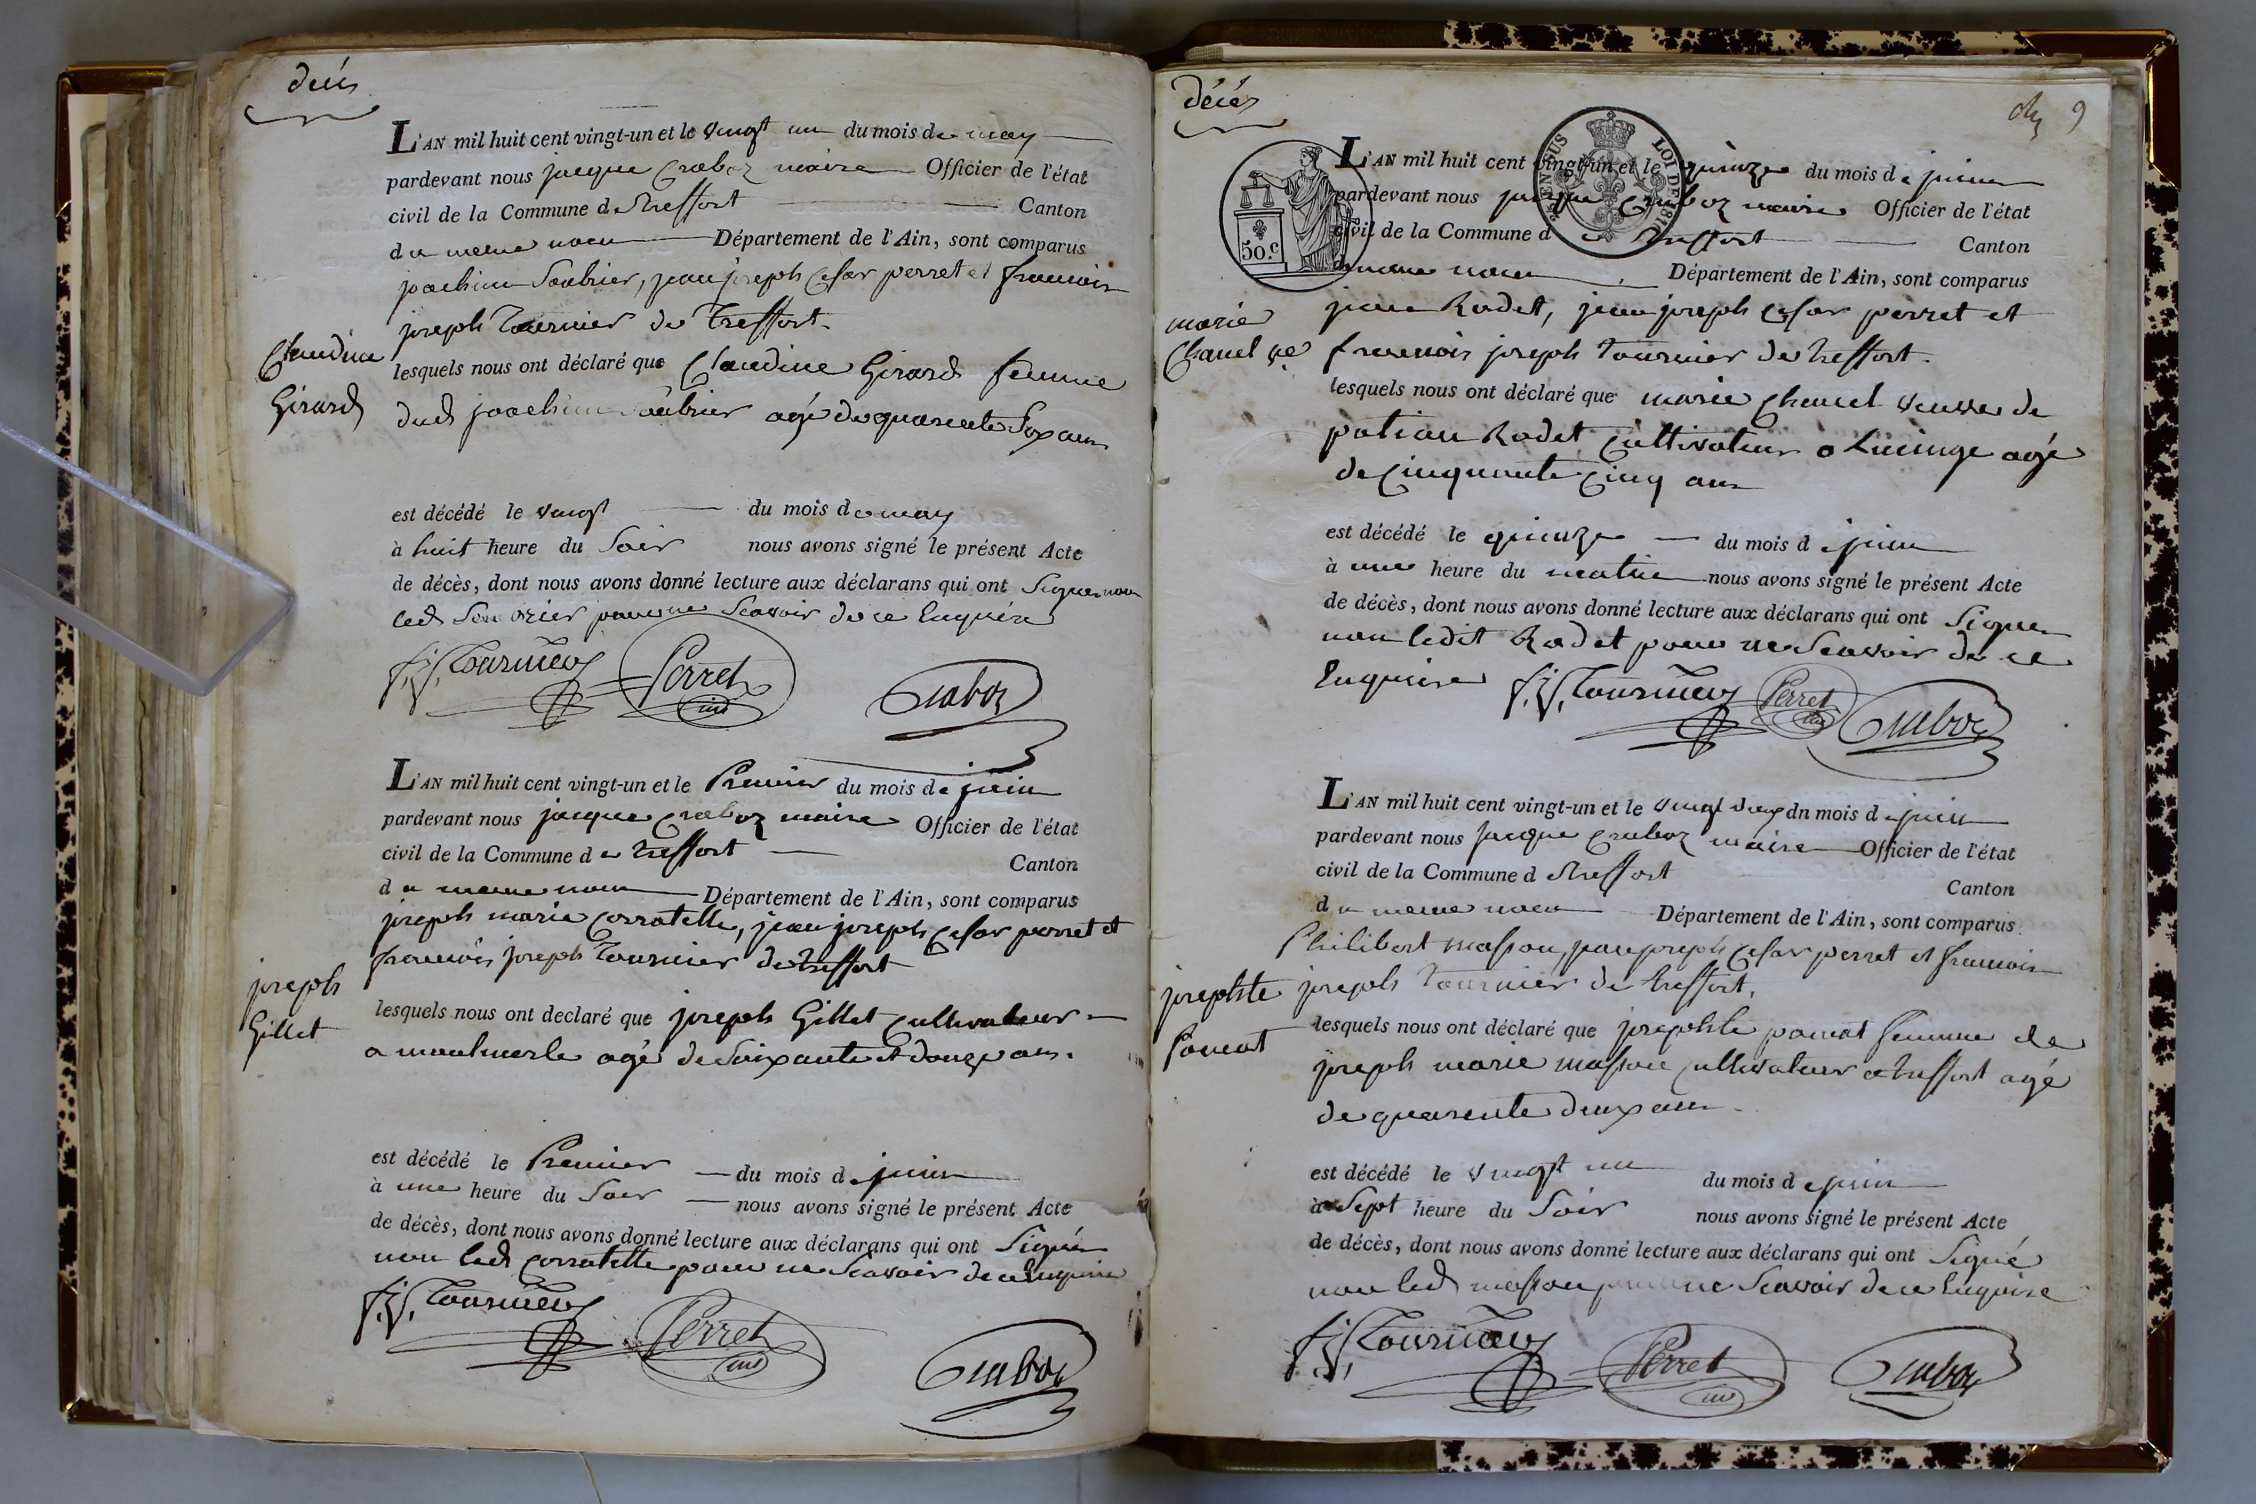 décès
L'AN mil huit cent vingt-un et le vingt un du mois de may
pardevant nous jacque Craboz maire Officier de l'état
civil de la Commune de treffort Canton
du meme nom Département de l'Ain, sont comparus
joachim Soubrier, jean joseph Cesar perret et francois
joseph Tournier de Treffort.
Claudine
Girard
lesquels nous ont déclaré que Claudine Girard femme
dud joachim Soubrier agé de quarente Six ans
est décédé le vingt du mois de may
à huit heure du Soir nous avons signé le présent Acte
de décès, dont nous avons donné lecture aux déclarans qui ont Signer non
led Soubrier pour ne Scavoir de ce Enquéris
f. j. Tournier Perret Craboz
L'AN mil huit cent vingt-un et le Premier du mois de juin
pardevant nous jacque Craboz maire Officier de l'état
civil de la Commune de treffort Canton
du meme nom Département de l'Ain, sont comparus
joseph marie Corratelle, jean joseph Cesar perret et
francois joseph Tournier de treffort
joseph
Gillet
lesquels nous ont declaré que joseph Gillet Cultivateur
a montmerle agé de Soixante et douze ans.
est décédé le Premier du mois de juin
à une heure du Soir nous avons signé le présent Acte
de décès, dont nous avons donné lecture aux déclarans qui ont Signér
non led Corratelle pour ne Scavoir de ce Enqueris
f. j. Tournier Perret Craboz
décés
9
50.c
LOI DE 1816
L'AN mil huit cent vingt-un et le quinze du mois de juin
pardevant nous jacque Craboz maire Officier de l'état
civil de la Commune de treffort Canton
du meme nom Département de l'Ain, sont comparus
jean Rodet, jean joseph Cesar perret et
francois joseph Tournier de treffort.
marie
Chanel ve
lesquels nous ont déclaré que marie Chanel veuve de
Rodet Cultivateur a Lucinge agé
de Cinquante Cinq ans
est décédé le quinze du mois de juin
à une heure du matin nous avons signé le présent Acte
de décès, dont nous avons donné lecture aux déclarans qui ont Signer
non ledit Rodet pour ne Scavoir de ce
Enquerire f. j. Tournier Perret Craboz
L'AN mil huit cent vingt-un et le vingt deux du mois de juin
pardevant nous jacque Craboz maire Officier de l'état
civil de la Commune de treffort Canton
du meme nom Département de l'Ain, sont comparus.
Philibert masson, jean joseph Cesar perret et francois
joseph Tournier de treffort.
josephte
poncet
lesquels nous ont déclaré que josephte poncet femme de
joseph marie masson Cultivateur a treffort agé
de quarente deux ans
est décédé le vingt un du mois de juin
à Sept heure du Soir nous avons signé le présent Acte
de décès, dont nous avons donné lecture aux déclarans qui ont Signé
non led masson pour ne Scavoir de ce Enquire
f. j. Tournier Perret Craboz